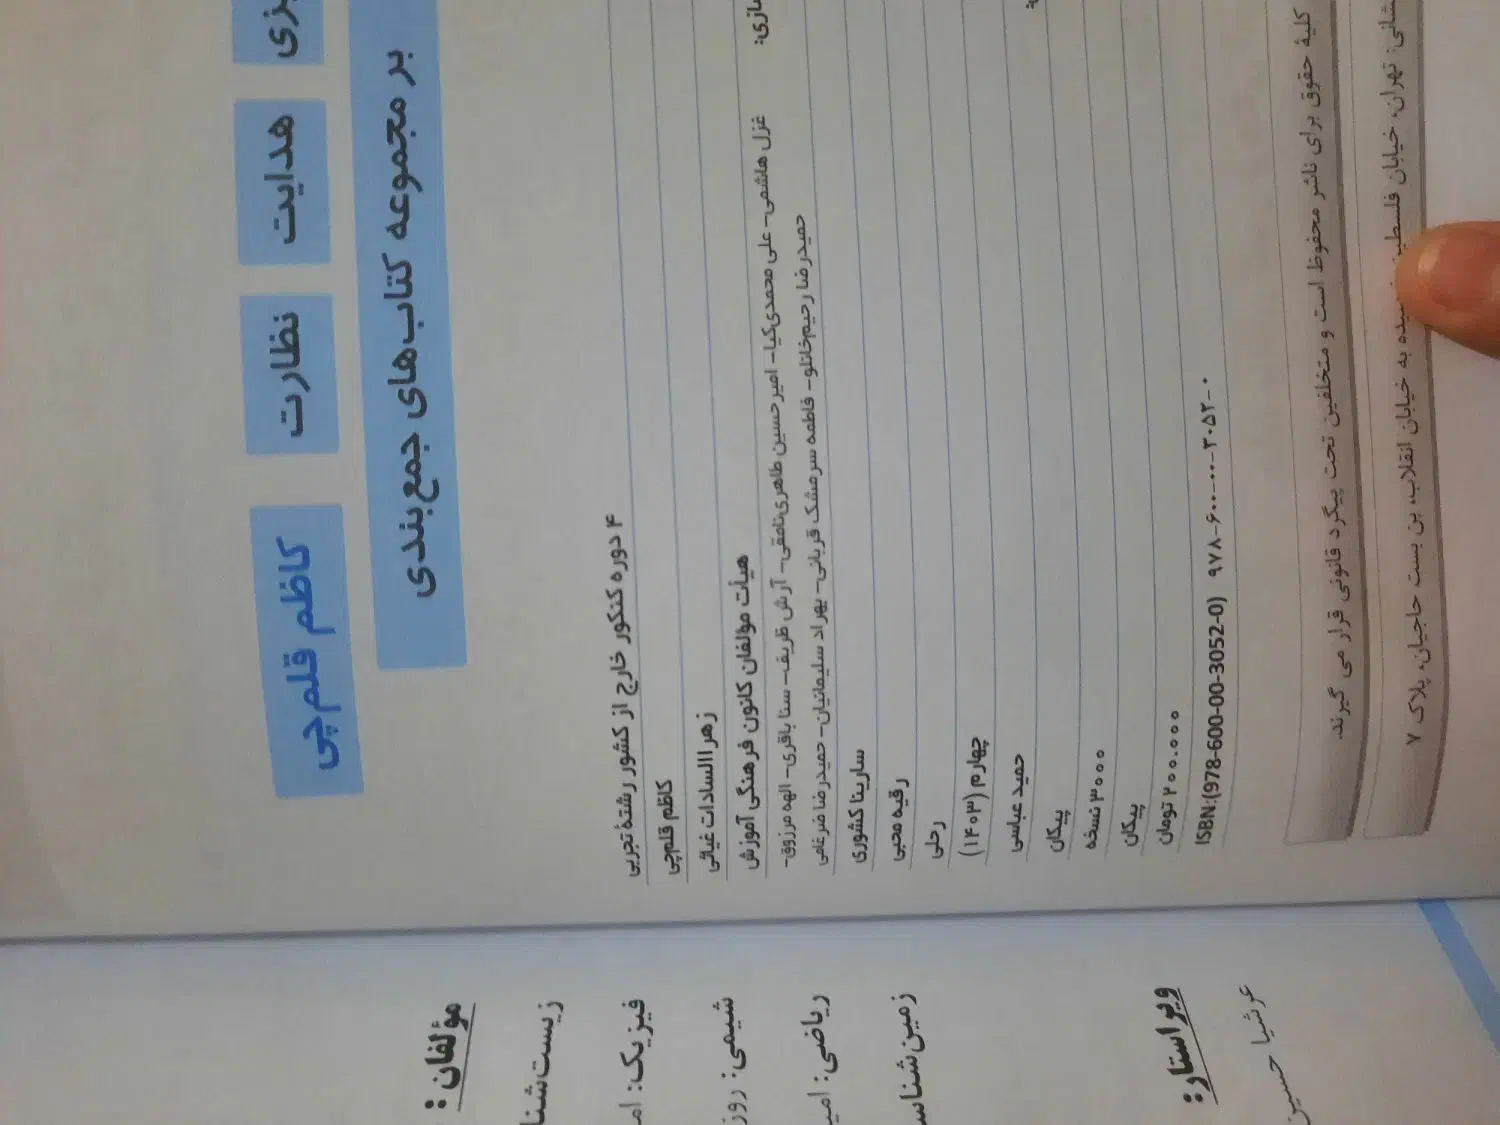 کاظم قلم‌چی
نظارت
هدایت
بر مجموعه کتاب‌های جمع‌بندی
۴ دوره کنکور خارج از کشور رشتهٔ تجربی
کاظم قلم‌چی
زهراالسادات غیاثی
هیأت مؤلفان کانون فرهنگی آموزش
غزل هاشمی- علی محمدی‌کیا- امیرحسین طاهری‌نامقی- آرش ظریف- سنا باقری- الهه مرزوق-
حمیدرضا رحیم‌خانلو- فاطمه سرمشک قربانی- بهراد سلیمانیان- حمیدرضا ضرغامی
سارینا کشوری
رقیه محبی
رحلی
چهارم (۱۴۰۳)
حمید عباسی
پیکان
۳۰۰۰ نسخه
پیکان
۲۰۰.۰۰۰ تومان
ISBN:(978-600-00-3052-0) ۹۷۸-۶۰۰-۰۰-۳۰۵۲-۰
کلیهٔ حقوق برای ناشر محفوظ است و متخلفین تحت پیگرد قانونی قرار می گیرند.
تهران، خیابان به خیابان انقلاب، بن بست حاجیان، پلاک ۷
مؤلفان:
فیزیک:
شیمی:
ریاضی:
ویراستار:
عرشیا